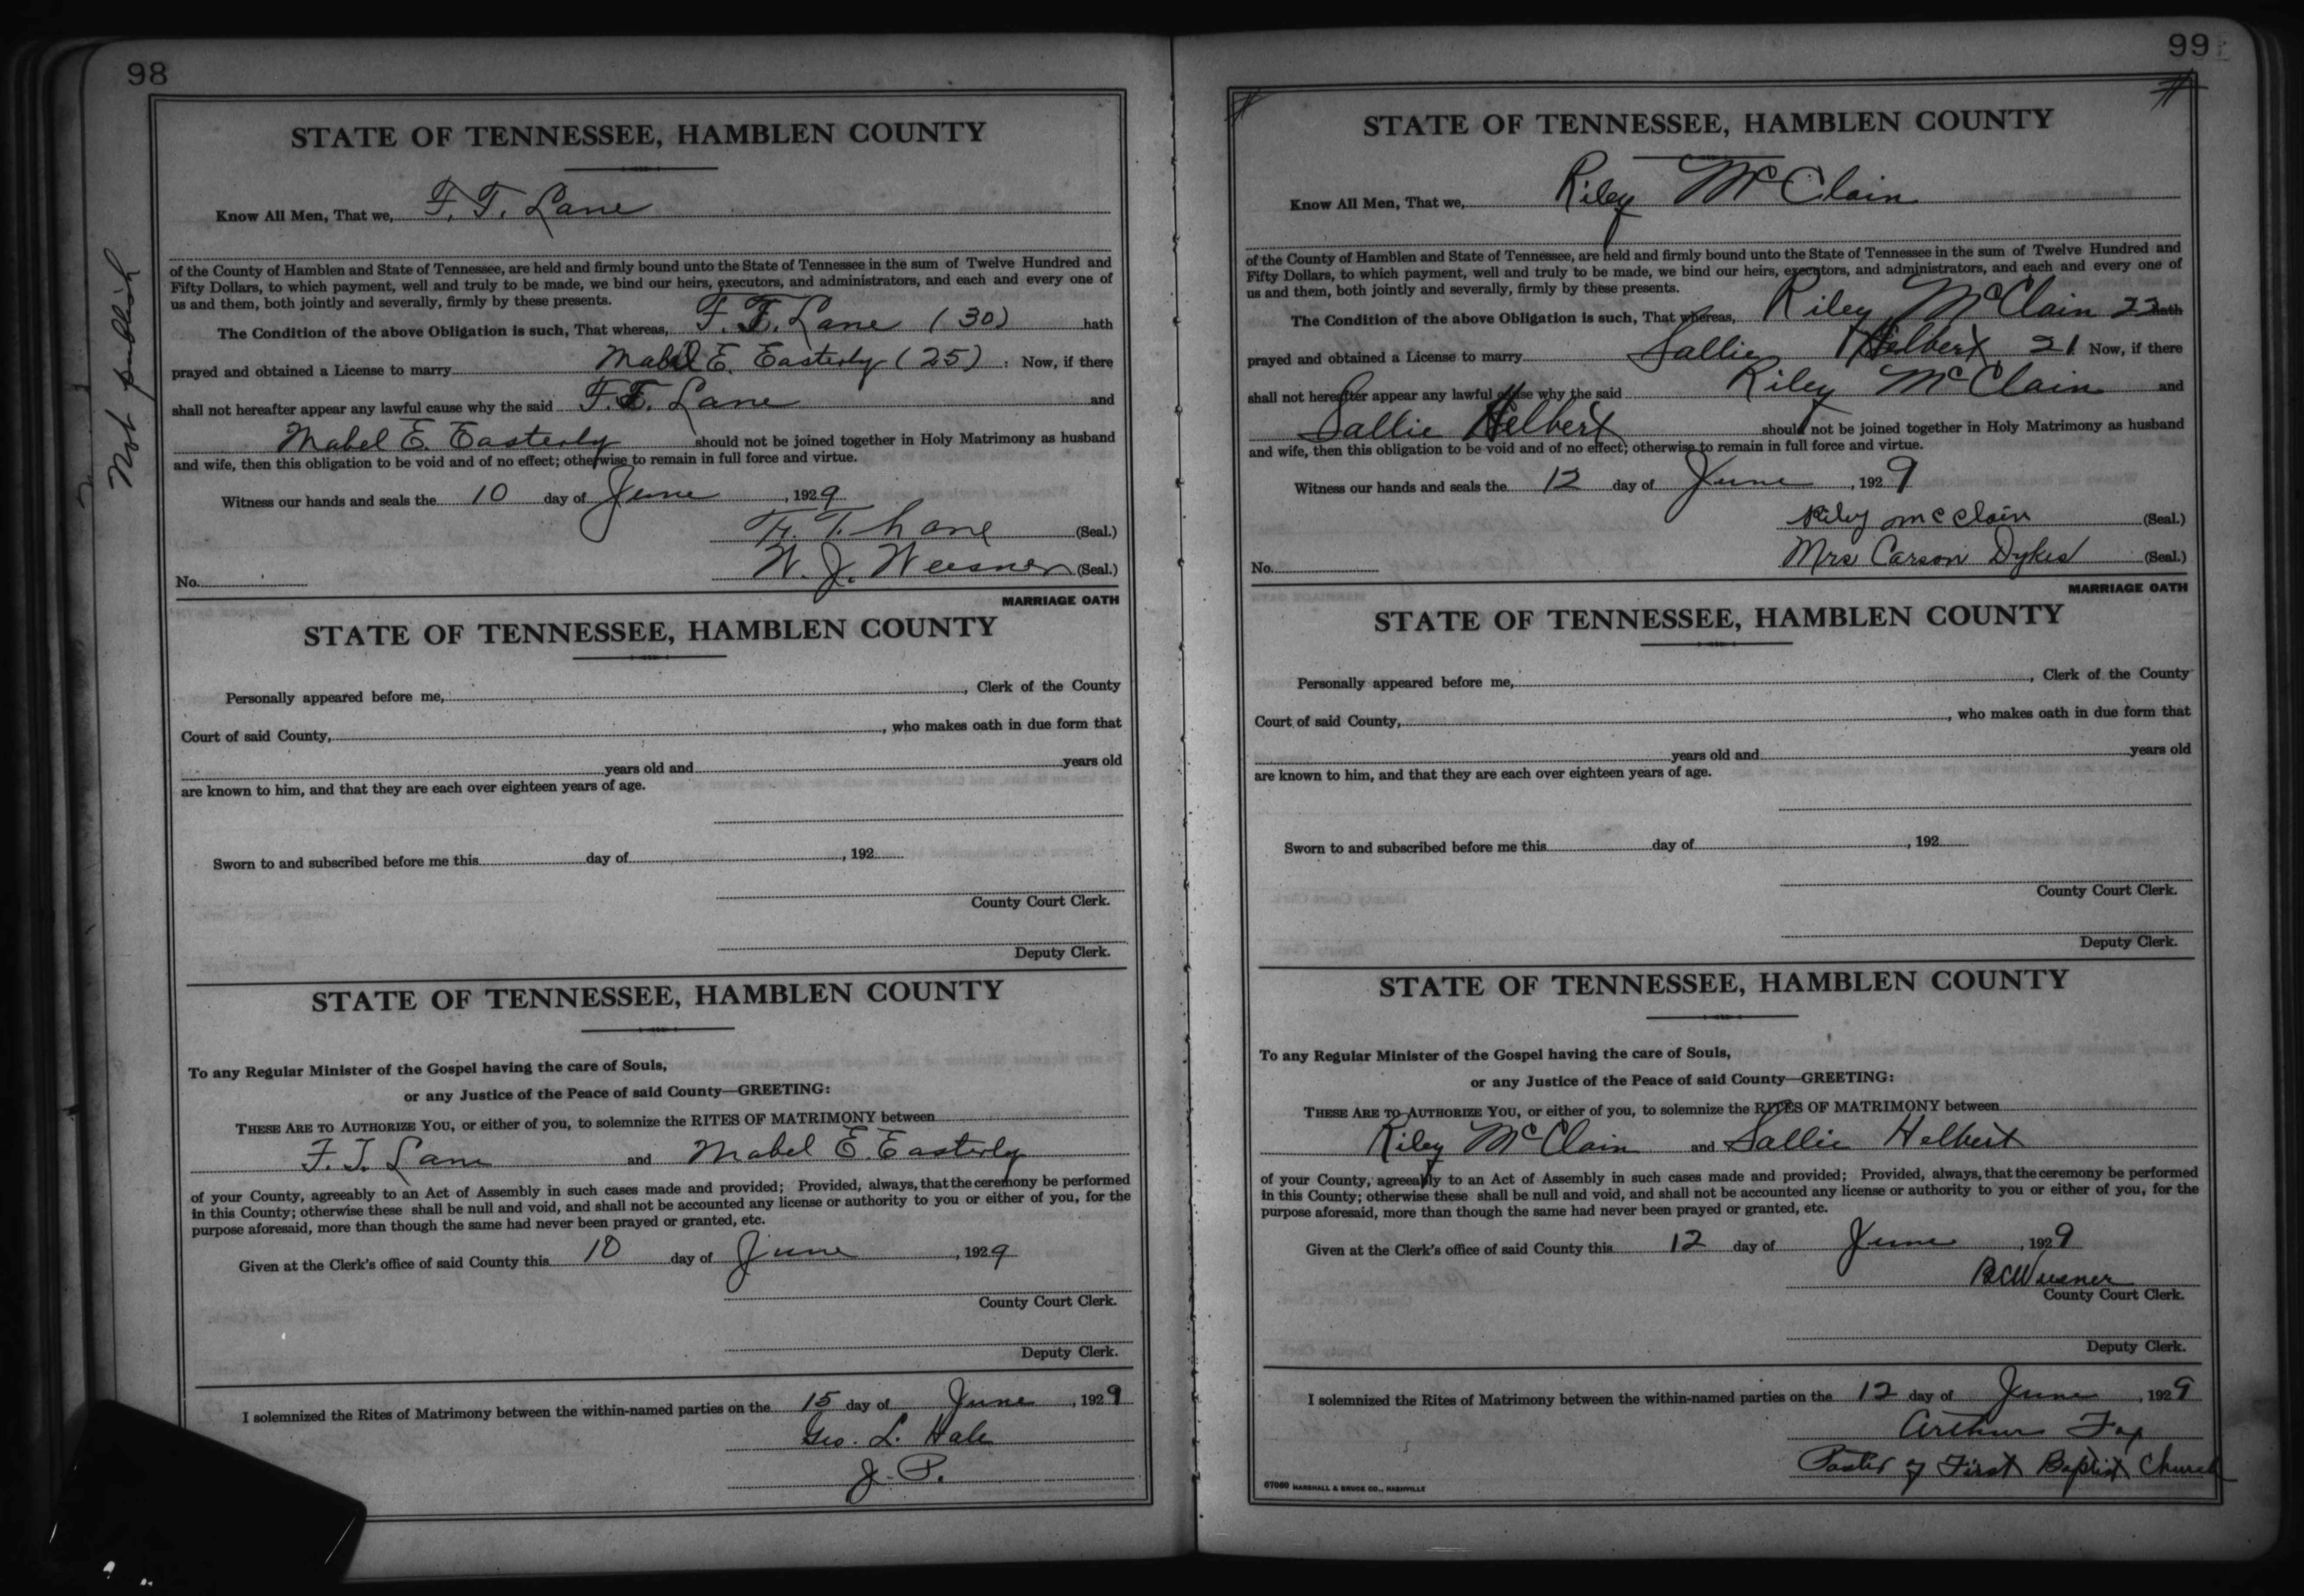 98
Not publish
STATE OF TENNESSEE, HAMBLEN COUNTY
Know All Men, That we, F. T. Lane
of the County of Hamblen and State of Tennessee, are held and firmly bound unto the State of Tennessee in the sum of Twelve Hundred and
Fifty Dollars, to which payment, well and truly to be made, we bind our heirs, executors, and administrators, and each and every one of
us and them, both jointly and severally, firmly by these presents.
The Condition of the above Obligation is such, That whereas, F. T. Lane (30) hath
prayed and obtained a License to marry Mabel E. Easterly (25) : Now, if there
shall not hereafter appear any lawful cause why the said F. T. Lane and
Mabel E. Easterly should not be joined together in Holy Matrimony as husband
and wife, then this obligation to be void and of no effect; otherwise to remain in full force and virtue.
Witness our hands and seals the 10 day of June, 1929
F. T. Lane (Seal.)
No. W. J. Weesner (Seal.)
MARRIAGE OATH
STATE OF TENNESSEE, HAMBLEN COUNTY
Personally appeared before me, , Clerk of the County
Court of said County, , who makes oath in due form that
years old and years old
are known to him, and that they are each over eighteen years of age.
Sworn to and subscribed before me this day of , 192
County Court Clerk.
Deputy Clerk.
STATE OF TENNESSEE, HAMBLEN COUNTY
To any Regular Minister of the Gospel having the care of Souls,
or any Justice of the Peace of said County—GREETING:
THESE ARE TO AUTHORIZE YOU, or either of you, to solemnize the RITES OF MATRIMONY between
F. T. Lane and Mabel E. Easterly
of your County, agreeably to an Act of Assembly in such cases made and provided; Provided, always, that the ceremony be performed
in this County; otherwise these shall be null and void, and shall not be accounted any license or authority to you or either of you, for the
purpose aforesaid, more than though the same had never been prayed or granted, etc.
Given at the Clerk's office of said County this 10 day of June, 1929
County Court Clerk.
Deputy Clerk.
I solemnized the Rites of Matrimony between the within-named parties on the 15 day of June, 1929
Geo. L. Hale
J. P.
99
STATE OF TENNESSEE, HAMBLEN COUNTY
Know All Men, That we, Riley McClain
of the County of Hamblen and State of Tennessee, are held and firmly bound unto the State of Tennessee in the sum of Twelve Hundred and
Fifty Dollars, to which payment, well and truly to be made, we bind our heirs, executors, and administrators, and each and every one of
us and them, both jointly and severally, firmly by these presents.
The Condition of the above Obligation is such, That whereas, Riley McClain hath
prayed and obtained a License to marry Sallie Helbert, 21 Now, if there
shall not hereafter appear any lawful cause why the said Riley McClain and
Sallie Helbert should not be joined together in Holy Matrimony as husband
and wife, then this obligation to be void and of no effect; otherwise to remain in full force and virtue.
Witness our hands and seals the 12 day of June, 1929
Riley McClain (Seal.)
No. Mrs Carson Dykes (Seal.)
MARRIAGE OATH
STATE OF TENNESSEE, HAMBLEN COUNTY
Personally appeared before me, , Clerk of the County
Court of said County, , who makes oath in due form that
years old and years old
are known to him, and that they are each over eighteen years of age.
Sworn to and subscribed before me this day of , 192
County Court Clerk.
Deputy Clerk.
STATE OF TENNESSEE, HAMBLEN COUNTY
To any Regular Minister of the Gospel having the care of Souls,
or any Justice of the Peace of said County—GREETING:
THESE ARE TO AUTHORIZE YOU, or either of you, to solemnize the RITES OF MATRIMONY between
Riley McClain and Sallie Helbert
of your County, agreeably to an Act of Assembly in such cases made and provided; Provided, always, that the ceremony be performed
in this County; otherwise these shall be null and void, and shall not be accounted any license or authority to you or either of you, for the
purpose aforesaid, more than though the same had never been prayed or granted, etc.
Given at the Clerk's office of said County this 12 day of June, 1929
BCWeesner
County Court Clerk.
Deputy Clerk.
I solemnized the Rites of Matrimony between the within-named parties on the 12 day of June, 1929
Arthur Fox
Paster of First Baptist Church
67060 MARSHALL & BRUCE CO., NASHVILLE